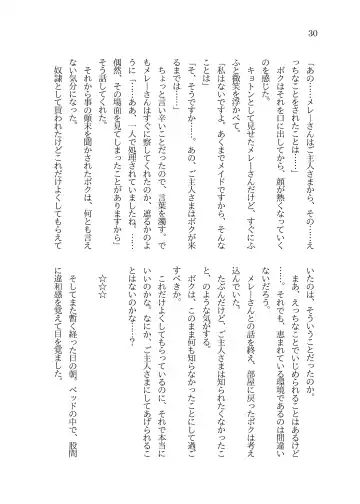 30
「あの……メレーさんはご主人さまから、その……え
っちなことをされたことは……」
　ボクはそれを口に出してから、顔が熱くなっていく
のを感じた。
　キョトンとして見せたメレーさんだけど、すぐにふ
ふと微笑を浮かべて、
「私はないですよ。あくまでメイドですから、そんな
ことは」
「そ、そうですか……。あの、ご主人さまはボクが来
るまでは……」
　ちょっと言い辛いことだったので、言葉を濁す。で
もメレーさんはすぐに察してくれたのか、遮るかのよ
うに「……ああ、一人で処理されていましたね。……
偶然、その場面を見てしまったことがありますから」
そう話してくれた。
　それから事の顛末を聞かされたボクは、何とも言え
ない気分になった。
　奴隷として買われたけどこれだけよくしてもらえて
いたのは、そういうことだったのか。
　まあ、えっちなことでいじめられることはあるけど
……。それでも、恵まれている環境であるのは間違い
ないだろう。
　メレーさんとの話を終え、部屋に戻ったボクは考え
込んでいた。
　たぶんだけど、ご主人さまは知られたくなかったこ
と、のような気がする。
　ボクは、このまま何も知らなかったことにして過ご
すべきか。
　これだけよくしてもらっているのに、それで本当に
いいのかな。なにか、ご主人さまにしてあげられるこ
とはないのかな……？
☆☆☆
　そしてまた暫く経った日の朝。ベッドの中で、股間
に違和感を覚えて目を覚ました。